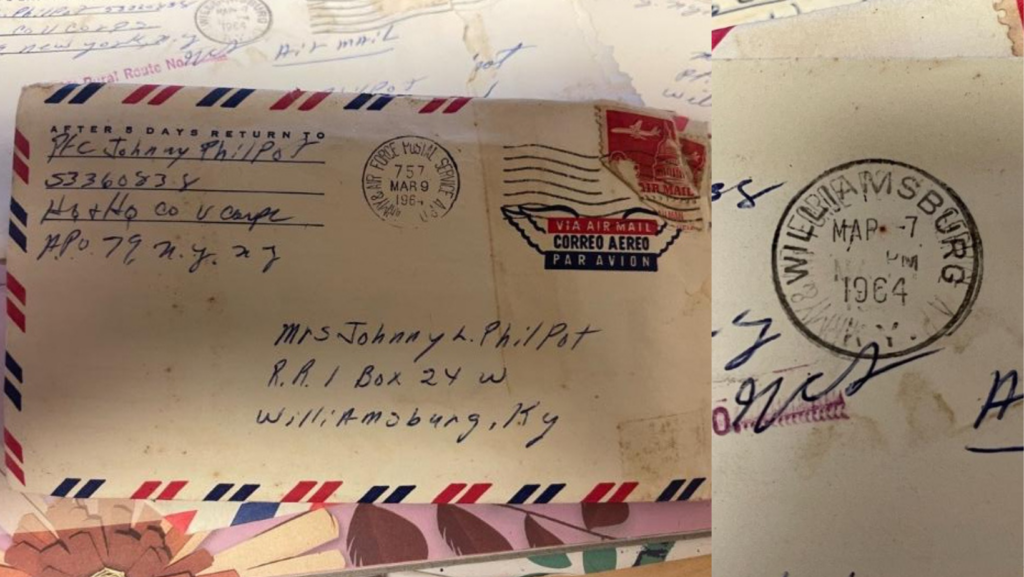 PhilPot
co V Corps
new york, n.y
WILLIAMSBURG
1964
Air mail
Rural Route No.
AFTER 5 DAYS RETURN TO
Pfc Johnny PhilPot
53360838
Hq & Hq co V Corps
APO 79, N.Y. N Y
ARMY & AIR FORCE POSTAL SERVICE
757
MAR 9
1964
AIR MAIL
VIA AIR MAIL
CORREO AEREO
PAR AVION
Mrs Johnny L. PhilPot
R.R. 1 Box 24 W
Williamsburg, Ky
WILLIAMSBURG
MAR -7
PM
1964
KY.